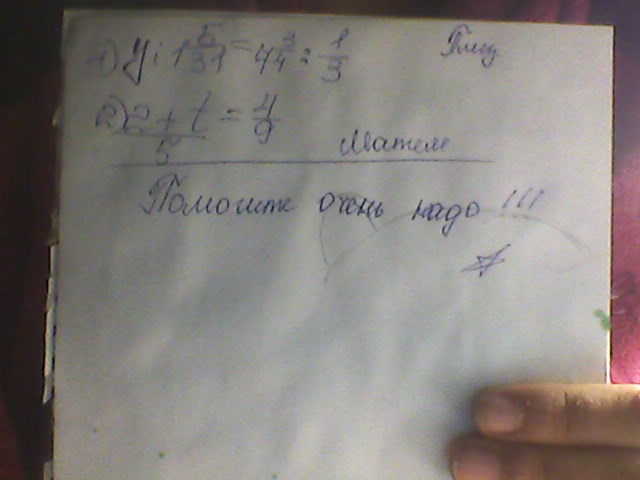 1) y : 1 5/31 = 4 3/4 : 1/3
2) 2 + t / 5 = 4/9
Матем
Помогите очень надо !!!